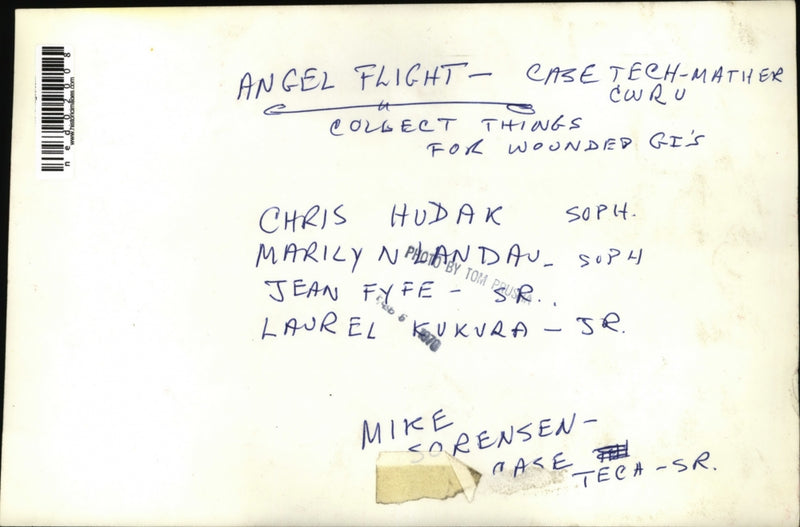 ANGEL FLIGHT - CASE TECH-MATHER
CWRU
COLLECT THINGS
FOR WOUNDED GI'S
CHRIS HUDAK SOPH.
MARILYN LANDAU - SOPH
PHOTO BY TOM
JEAN FYFE - SR.
LAUREL KUKURA - JR.
6 1970
MIKE
SORENSEN-
CASE
TECH-SR.
ned02008
www.historicimages.com